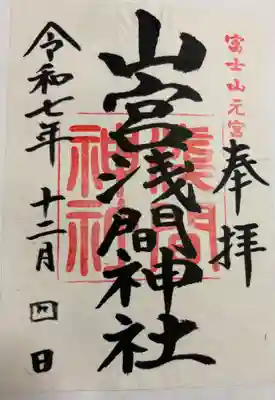 富士山元宮
奉拝
山宮浅間神社
浅間神社
令和七年 十二月 四日